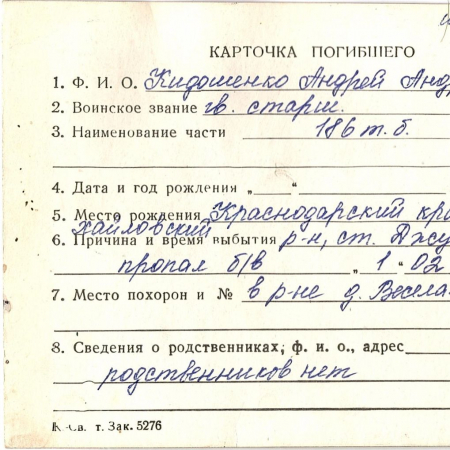 КАРТОЧКА ПОГИБШЕГО
1. Ф. И. О. Кидошенко Андрей Анд
2. Воинское звание гв. старш.
3. Наименование части 186 т. б.
4. Дата и год рождения „ “
5. Место рождения Краснодарский кра
хайловский
6. Причина и время выбытия р-н, ст. Джу
пропал б/в „1“ 02
7. Место похорон и № в р-не д. Весела
8. Сведения о родственниках, ф. и. о., адрес
родственников нет
т. Зак. 5276